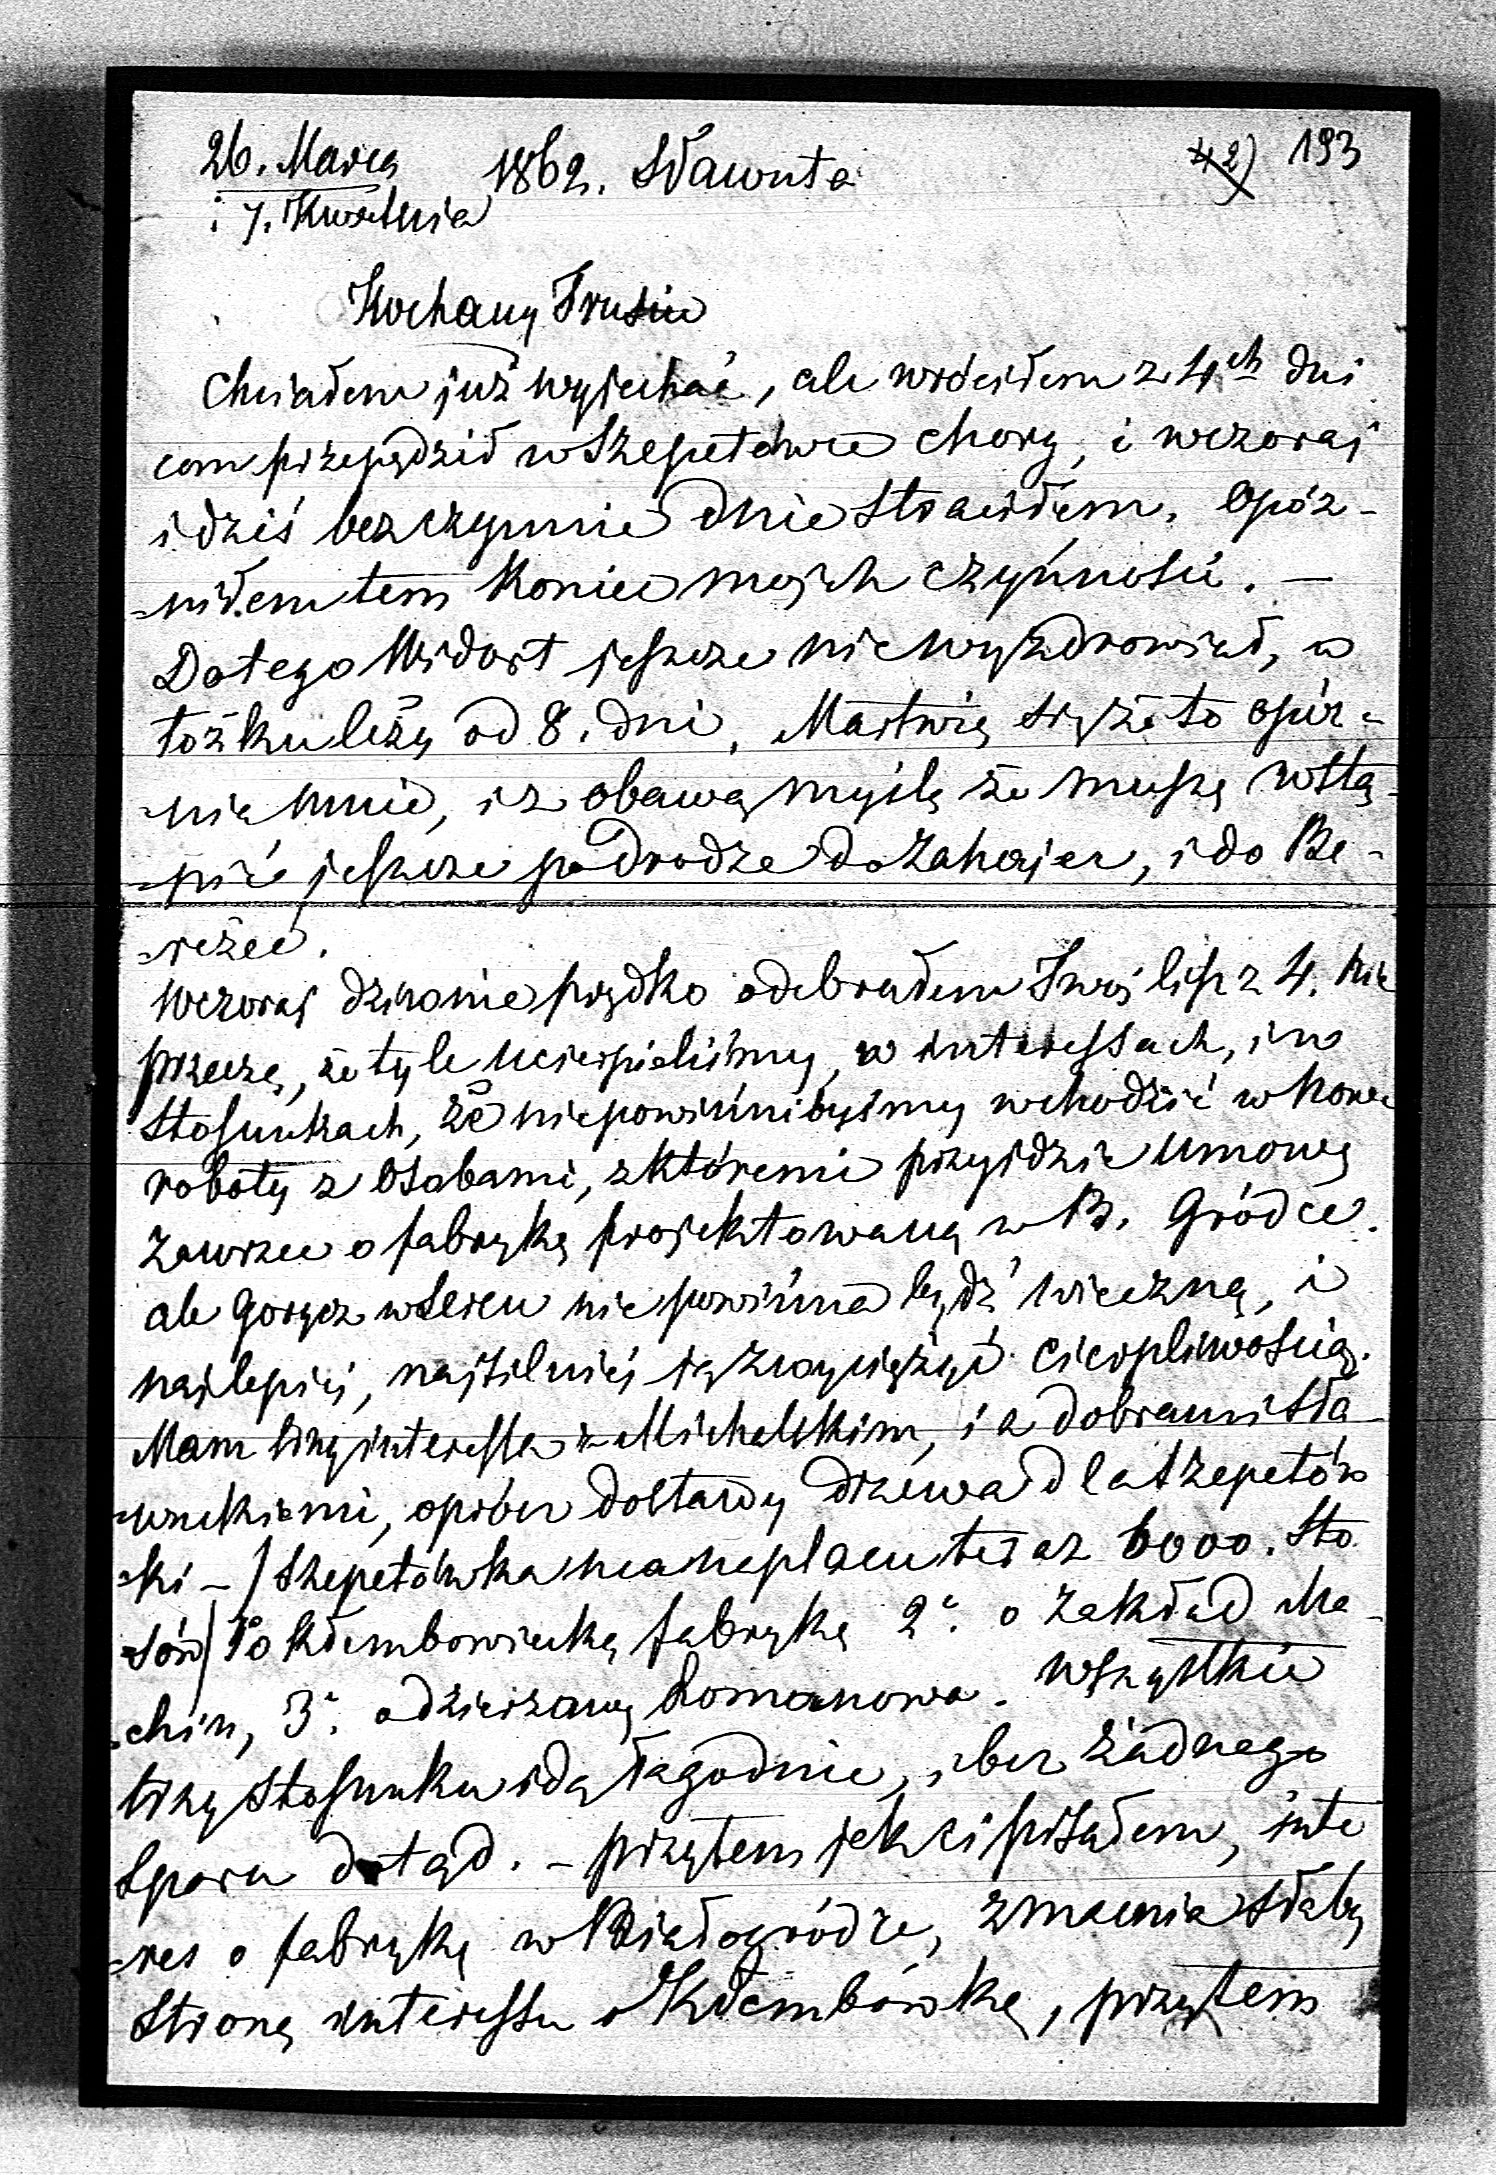 26. Marca 1862. Sławuta 42) 193
i 7. Kwietnia
Kochany Trusiu
Chciałem już wyjechać, ale wróciłem z 4ch dni
com przepędził w Szepetówce chory, i wczoraj
i dziś bezczynnie dnie straciłem. Opóź-
-niłem tem koniec mojch czyńności. —
Do tego Widort jeszcze nie wyzdrowiał, w
łożku leży od 8. dni. Martwię się że to opóź-
-nia mnie, i z obawą myślę że muszę wstą-
-pić jeszcze po drodze do Zahajec, i do Be-
-reżec.
Wczoraj dziwnie prędko odebrałem Twój list z 4. Nie
przeczę, że tyle ucierpieliśmy, w interessach, i w
stosunkach, że niepowinnibyśmy wchodzić w nowe
roboty z osobami, z któremi przyjdzie umowę
zawrzec o fabrykę projektowaną w B. Gródce.
ale gorycz w sercu nie powinna bydź wieczną, i
najlepiéj, najsilniéj ją zwyciężyć cierpliwością.
Mam trzy interessa z Michelskim, i z dobrami Sła-
-wuckiemi, oprócz dostawy drzewa dla Szepetów-
-ki – / Szepetówka ma na placu teraz 6000. sto-
-sów / 1o Kłembowiecką fabrykę 2o. o zakład Ma-
-chin, 3o. o dzierżawę Romanowa. Wszystkie
trzy stosunku idą łagodnie, i bez żadnego
sporu dotąd. – przytem jak ci pisałem, inte
-res o fabrykę w Białogródce, zmacnia słabą
stronę interessu o Kłembówkę, przytem